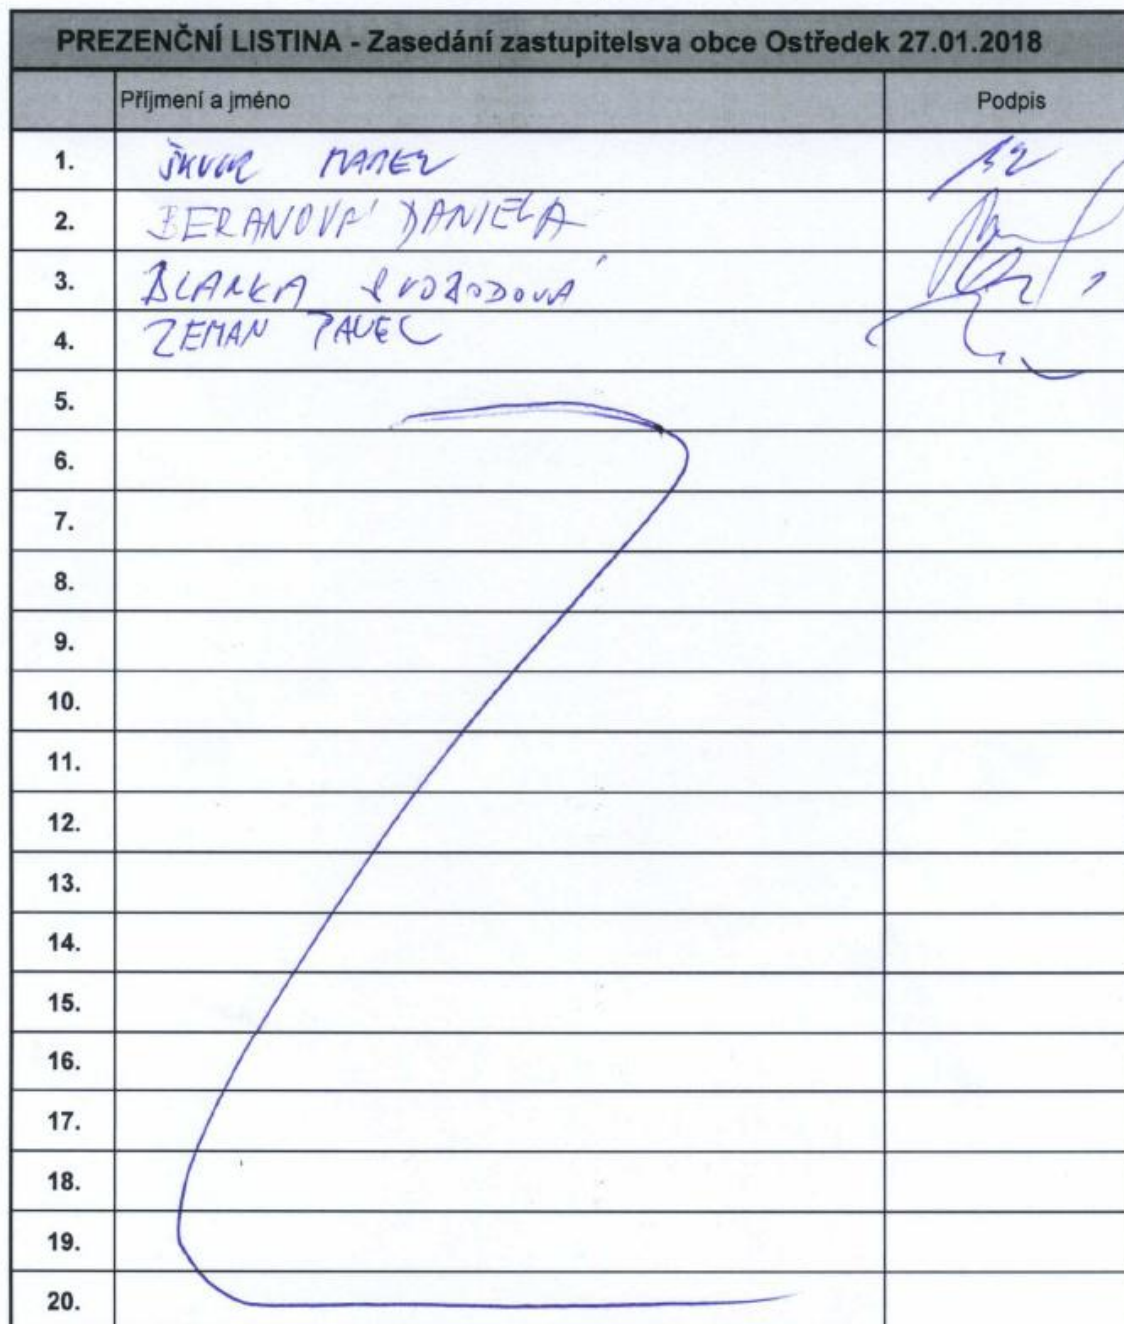 PREZENČNÍ LISTINA - Zasedání zastupitelsva obce Ostředek 27.01.2018
Příjmení a jméno Podpis
1. MAREK
2. BERANOVÁ DANIELA
3. BLANKA SVOBODOVÁ
4. ZEMAN PAVEL
5.
6.
7.
8.
9.
10.
11.
12.
13.
14.
15.
16.
17.
18.
19.
20.